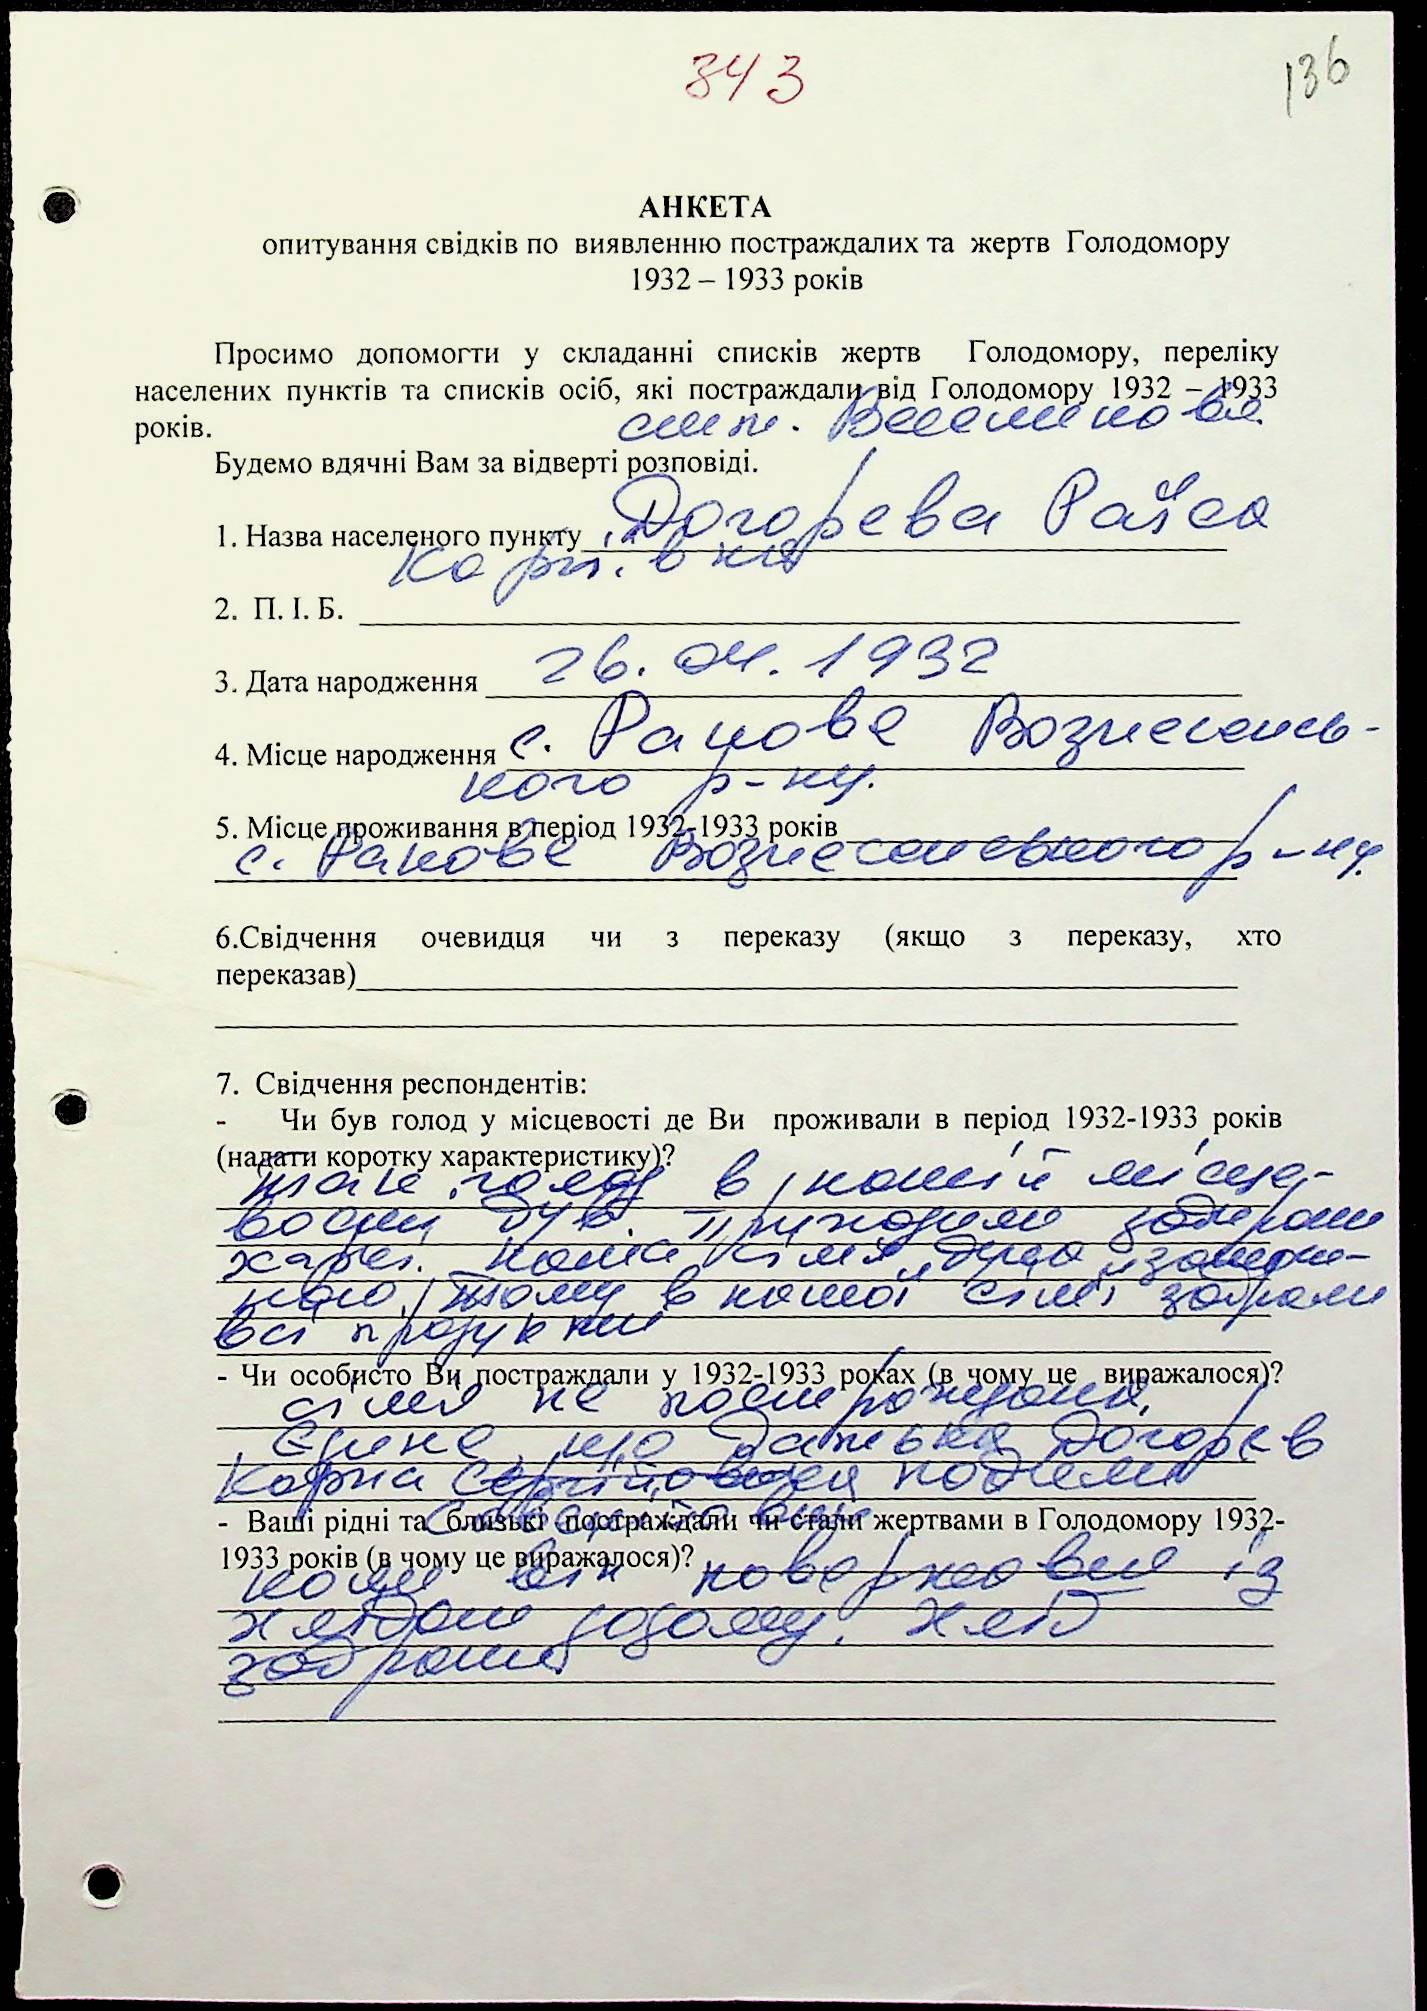 343
136
АНКЕТА
опитування свідків по виявленню постраждалих та жертв Голодомору
1932 – 1933 років
Просимо допомогти у складанні списків жертв Голодомору, переліку
населених пунктів та списків осіб, які постраждали від Голодомору 1932 – 1933
років.
смт.
Будемо вдячні Вам за відверті розповіді.
Догорєва Раїса
1. Назва населеного пункту
Карпівна
2. П. І. Б.
3. Дата народження 26.04.1932
4. Місце народження с. Ракове Вознесенсь-
кого р-ну.
5. Місце проживання в період 1932-1933 років
с. Ракове Вознесенського р-ну.
6.Свідчення очевидця чи з переказу (якщо з переказу, хто
переказав)
7. Свідчення респондентів:
- Чи був голод у місцевості де Ви проживали в період 1932-1933 років
(надати коротку характеристику)?
так голод в нашій місце-
вості був. Приходили забирали
харчі. наша сім'я була заможн-
ною, тому в нашої сім'ї забрали
всі продукти
- Чи особисто Ви постраждали у 1932-1933 роках (в чому це виражалося)?
сім'я не постраждала,
Єдине, що батька Догорєв
Карпа Сергійовича
- Ваші рідні та близькі постраждали чи стали жертвами в Голодомору 1932-
1933 років (в чому це виражалося)?
коли він повертався із
хлібом додому. Хліб
забрали